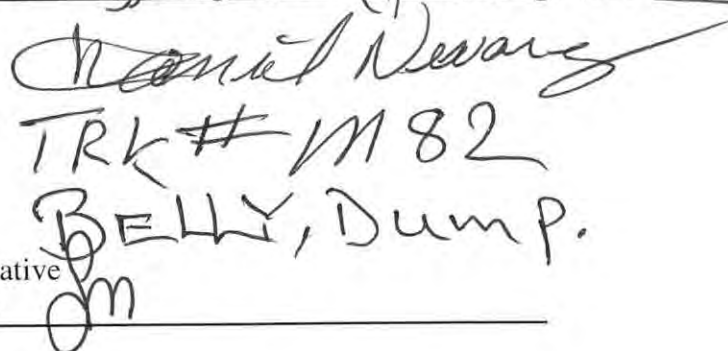 Daniel Nevarez
TRK # M82
BELLY, Dump.
ative